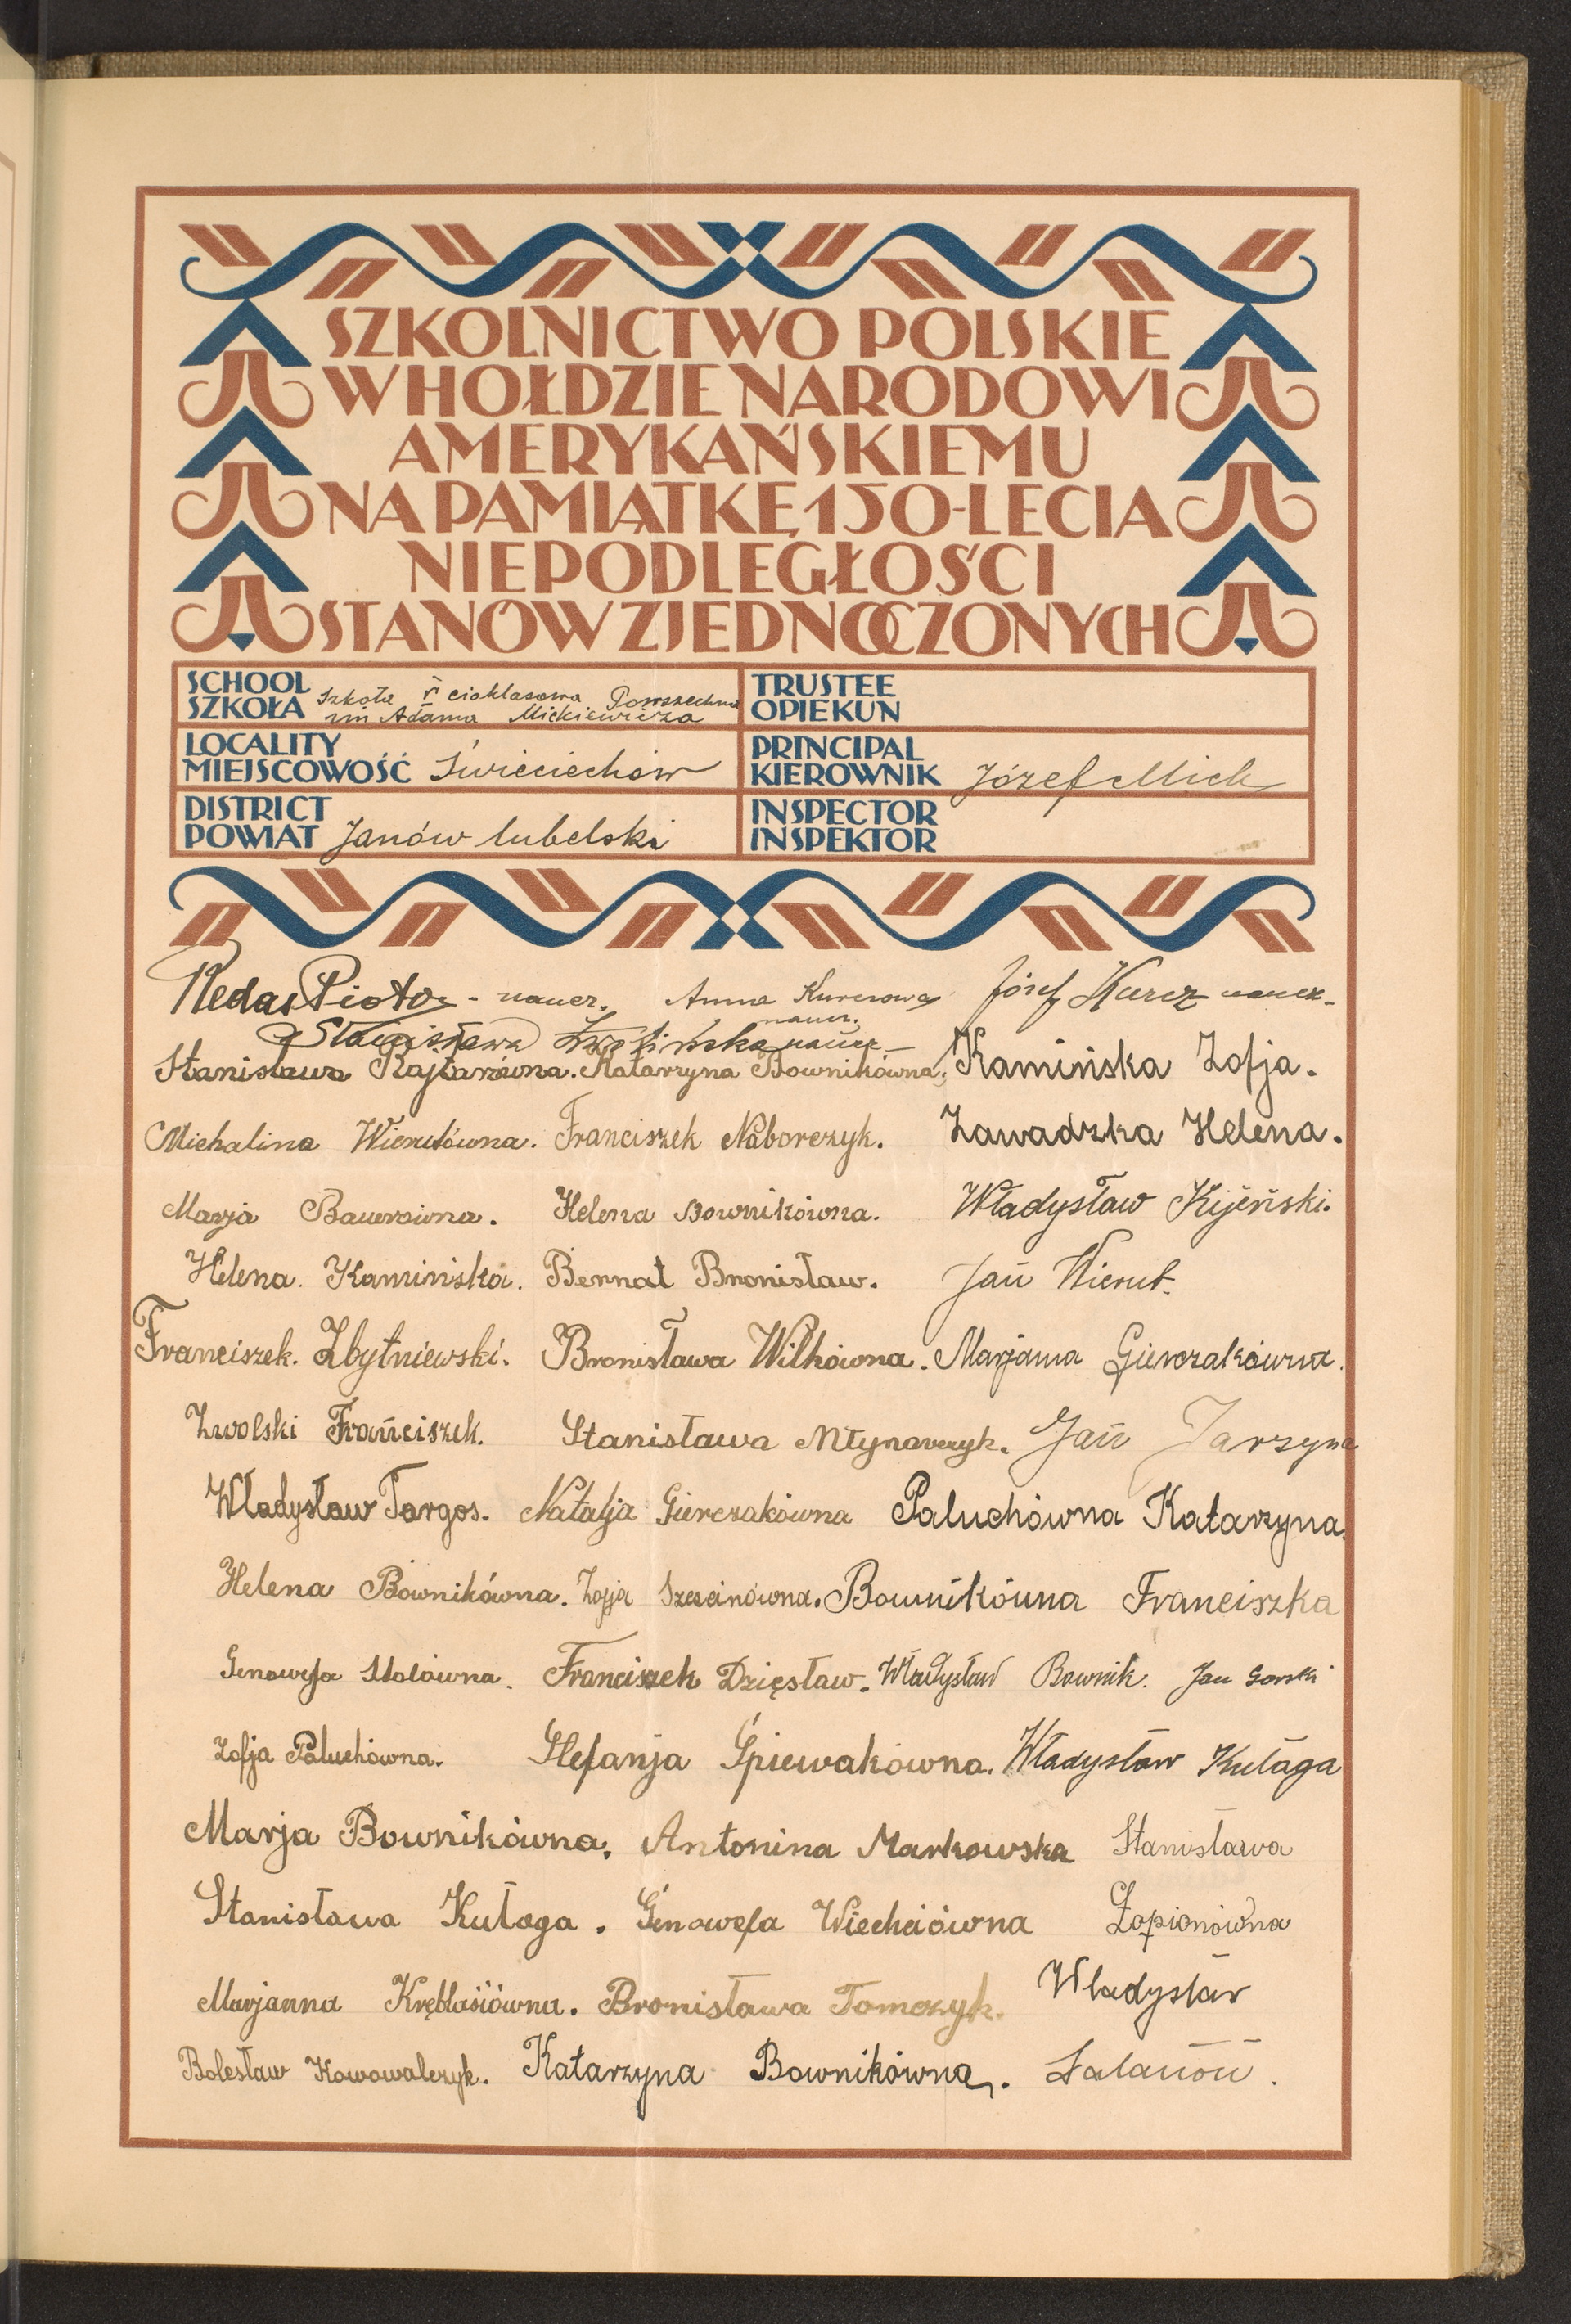 SZKOLNICTWO POLSKIE
W HOŁDZIE NARODOWI
AMERYKAŃSKIEMU
NA PAMIĄTKĘ 150-LECIA
NIEPODLEGŁOŚCI
STANÓW ZJEDNOCZONYCH
SCHOOL
SZKOŁA Szkoła V cioklasowa Powszechna
im Adama Mickiewicza
TRUSTEE
OPIEKUN
LOCALITY
MIEJSCOWOŚĆ Świeciechów
PRINCIPAL
KIEROWNIK Józef Mich
DISTRICT
POWIAT Janów lubelski
INSPECTOR
INSPEKTOR
Redas Piotr - naucz. Anna Kurczowa naucz. Józef Kurcz naucz.
Stanisława Zwolińska naucz.
Stanisława Rajtarówna. Katarzyna Bownikówna. Kamińska Zofja.
Michalina Wierutówna. Franciszek Naborczyk. Zawadzka Helena.
Marja Bauerówna. Helena Bownikówna. Władysław Kijeński.
Helena. Kamińska. Bernat Bronisław. Jan Wierut.
Franciszek. Zbytniewski. Bronisława Wilkówna. Marjanna Gierczakówna.
Zwolski Franciszek. Stanisława Młynarczyk. Jan Jarzyna
Władysław Targos. Natalja Gierczakówna Paluchówna Katarzyna.
Helena Bownikówna. Zofja Szczecinówna. Bownikówna Franciszka
Genowefa Stolówna. Franciszek Dzięsław. Władysław Bownik. Jan Gorski
Zofja Paluchówna. Stefanja Śpiewakówna. Władysław Kułaga
Marja Bownikówna. Antonina Markowska Stanisława
Stanisława Kułaga. Genowefa Wiechciówna Łopionówna
Marjanna Kręblasiówna. Bronisława Tomczyk. Władysław
Bolesław Kowowalczyk. Katarzyna Bownikówna. Salamon.